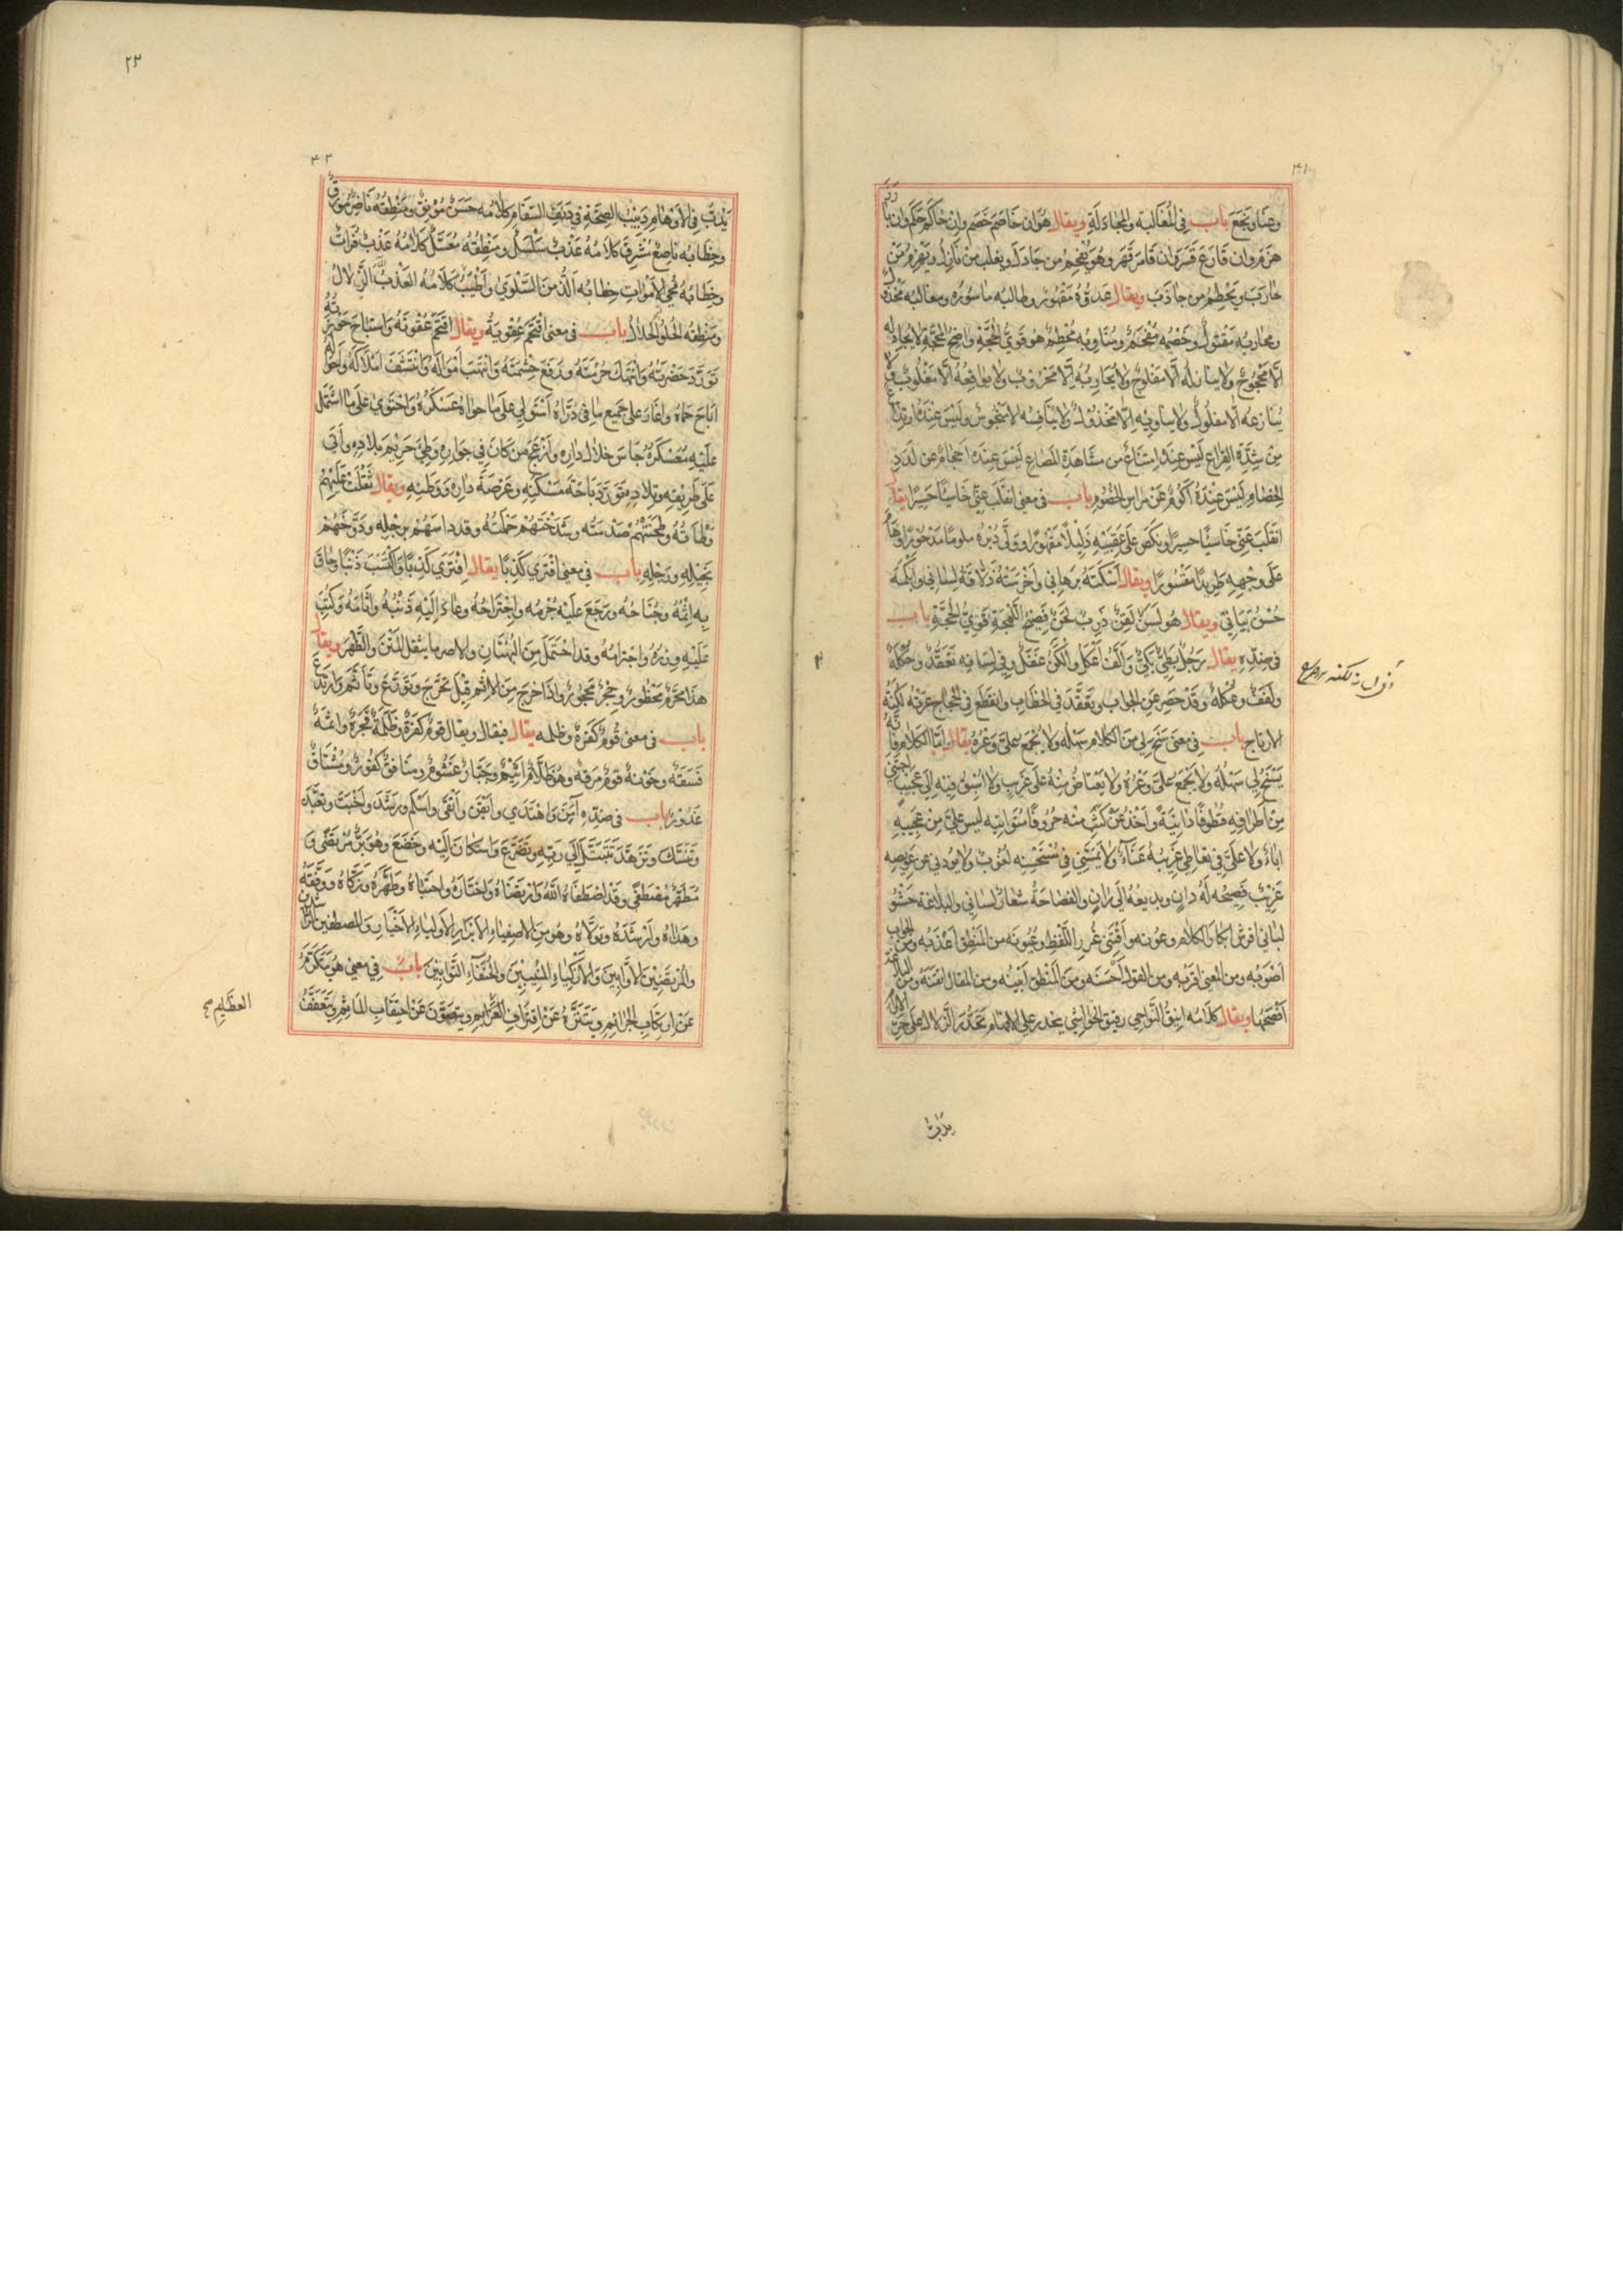 ٤١
وعنا وتجع باب فى المغالبته والمجادلة ويقال هو ان خاصم خصم وان حاكم حكم وان بارز
هزم وان قارع قسر وان قامر قهر وهو يفحم من جادل ويغلب من نازل ويهزم من
حارب ويحطم من جاذب ويقال عدوه مقهور وطالبه ماسوره ومغالبه مخذول
ومحاربه مفتول وخصمه مفحم ومناويه محطم هو قوي الحجة واضح المحجة لا يجادله
الا محجوج ولا ينازله الا مفلوج ولا يحاربه الا محروب ولا يواقعه الا مغلوب ولا
ينازعه الا مفلول ولا يناويه الا مخذول ولا ينافسه الا منحوس وليس عنده ارتداع
من شدة القراع ليس عنده امتناع من مشاهدة المصاع ليس عنده احجام عن لدد
الخصام ليس عنده عن مراس الخصوم باب فى معنى انقلب عني خاسيا حسيرا يقال
انقلب عني خاسيا حسيرا ونكص على عقبيه ذليلا مقهورا وولى دبره ملوما مدحورا وهام
على وجهه طريدا مقسورا ويقال اسكته برهاني واخرسته ذلاقة لساني وابكمه
حسن بياني ويقال هو لسن لقن ذرب لحن فصيح اللهجة قوي الحجة باب
فى ضده يقال رجل بكي والف اعكل والكن عفنل وفي لسانه تعقد وحكلة
ولفف وعكلة وقد حصر عن الجواب وتعقد في الخطاب وانقطع في الحجاج عرته لكنة
الارتاج باب فى معنى سنح لي من الكلام سهله ولا يجمع علي وعره يقال اما الكلام فانه
يسنح لي سهله ولا يجمع علي وعره ولا يعتاض منه على غريب ولا اشق فيه الى عجيب اجتني
من اطرافه قطوفا دانية واخذ عن كثب منه حروفا متوانيه ليس علي من عجيبه
اباء ولا علي في تعاطي غريبه عناء ولا يمسني في لغوب ولا يودني من عويصه
غريب فصيحه له دان وبديعه الي ران والفصاحة شعار لساني والبلاغة حشو
لباني افرش ابكار الكلام وعونه واقتني غرر اللفظ وعيونه من المنطق اعذبه ومن الجواب
اصوبه ومن المعنى اقربه ومن القول احسنه ومن المنطق ابينه ومن المقال اتقنه ومن البلاغة
افصحها ويقال كلامه انيق النواحي رقيق الحواشي يحدر على الافهام تحدر الزلال على حر
يدب
٢٣
٤٢
يدب فى الاوهام دبيب الصحة في دنف السقام كلامه حسن مونق ومنطقه ناضر مورق
وخطابه ناصع مشرق كلامه عذب سلسل ومنطقه معسل كلامه عذب فرات
وخطابه محي الاموات خطابه الذ من السلوي واطيب كلامه العذب الزلال
ومنطقه الحلو الحلال باب فى معنى اقتحم عقوبة ويقال اقتحم عقوته واستباح حوزته
تورد حضرته وانتهك حرمته ودفع حشمته وانتهب امواله وانتسف املاكه واحواله
اباح حماه واغار على جميع ما فى ذراه استولي على ما حواه عسكره واحتوي على ما اشتمل
عليه معسكره جاس خلال داره وازعج من كان فى جواره ووطي حريم بلاده واتى
على طريفه وتلاده تورد باحة مسكنه وعرصة داره ووطنه ويقال ثقلت عليهم
وطاته وطحنتهم صدمته وشدختهم حملته وقد داسهم برجله ودوخهم
بخيله ورجله باب فى معنى افترى كذبا يقال افترى كذبا واكتسب ذنبا وحاق
به اثمه وجناحه ورجع عليه جرمه واجتراحه وعاد اليه ذنبه واثامه وكتب
عليه وزره واجترامه وقد احتمل من البهتان والاصر ما يثقل المتن والظهر ويقال
هذا محرم محظور وحجر محجور واذا خرج من الاثم قيل تحرج وتورع وتاثم وارتدع
باب فى معنى قوم كفرة وظلمه يقال فيقال ويقال قوم كفرة وظلمة فجرة واثمة
فسقة وخونة قوم مرقه وهو ظلام اثيم وجبار غشوم ومنافق كفور ومشتاق
غدور باب فى ضده آمن واهتدي وايقن واتقى واسلم ورشد واخبت وتعبد
وتنسك وتزهد تبتل الي ربه وتضرع واستكان اليه وخضع وهو بر مرتضى و
مطهر مصطفى وقد اصطفاه الله وارتضاه واختاره واجتباه وطهره وزكاه ووفقه
وهداه وارشده وتولاه وهو من الاصفياء الابرار الاولياء الاخيار والمصطفين
والمرتضين الاوابين والازكياء المنيبين والحنفاء التوابين باب في معنى هو يتكرم
عن ارتكاب الجرائم ويتنزه عن اقتراف العظايم ويتصون عن احتقاب الماثم ويتعفف
العظايم صح